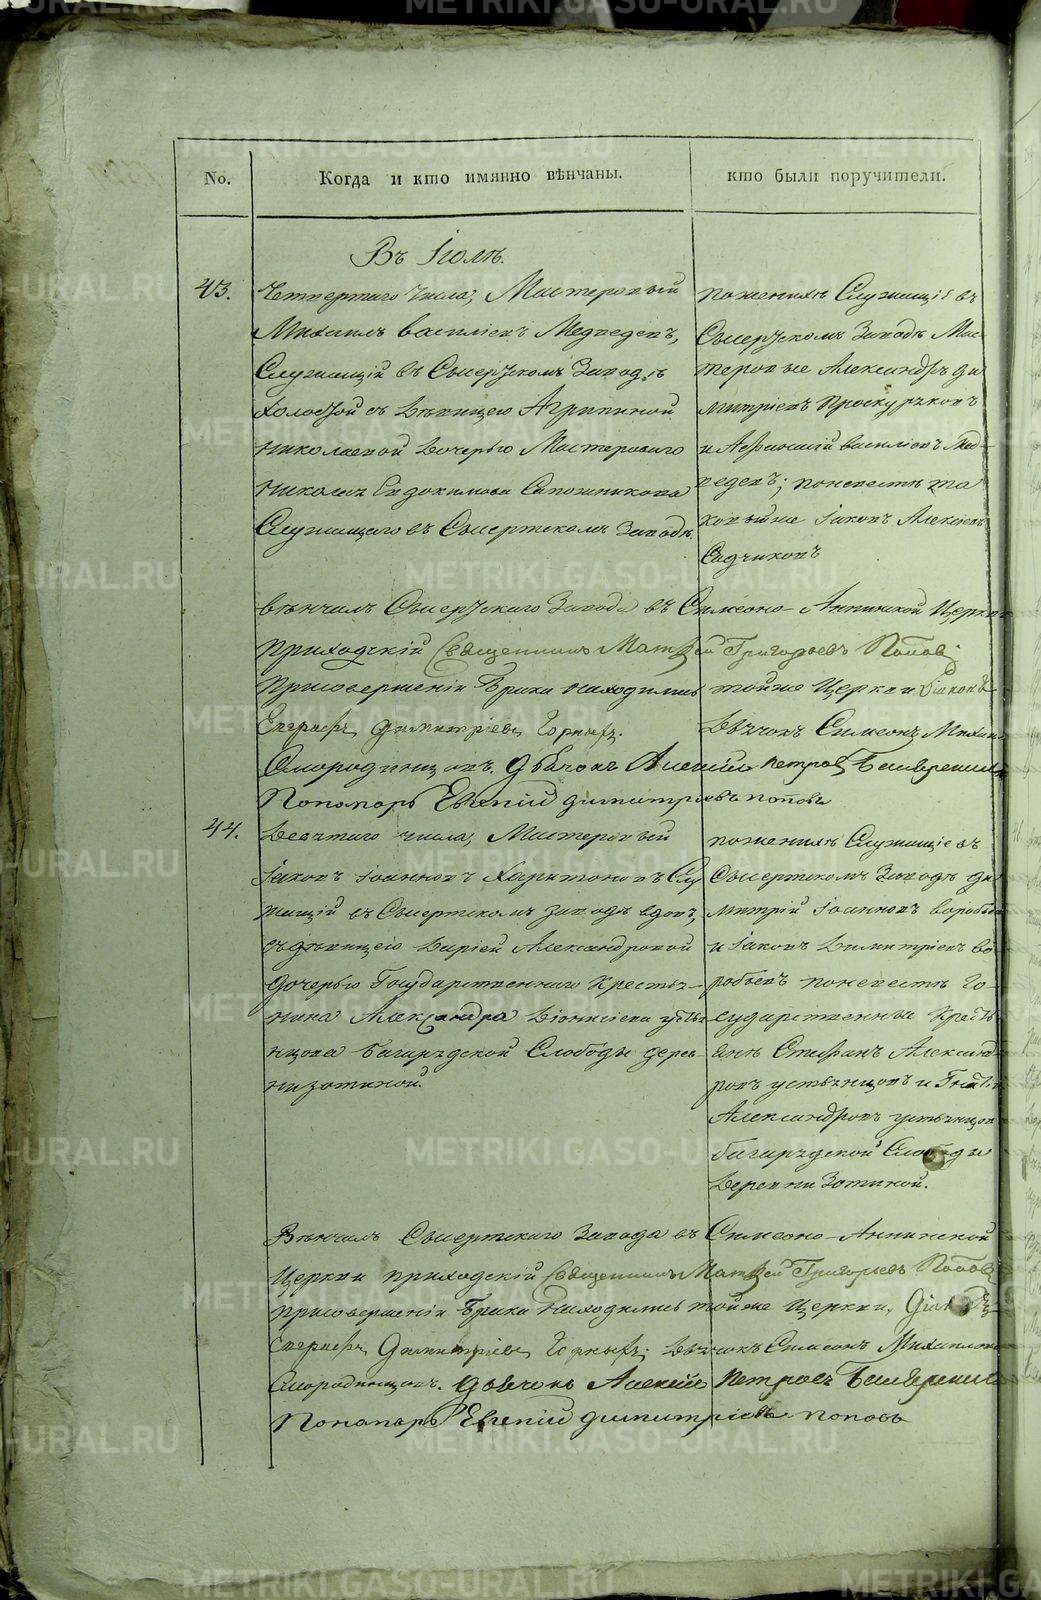 No.
Когда и кто имянно вѣнчаны.
кто были поручители.
Въ Іюлѣ.
43.
Четвертаго числа, Мастеровый
Михаилъ Василіевъ Медведевъ,
Служащій въ Сысертскомъ Заводѣ
Холостой съ Дѣвицею Агрипиной
Николаевой дочерью Мастероваго
Николая Евдокимова Сапожникова
Служащаго въ Сысертскомъ Заводѣ.
по женихѣ Служащіе въ
Сысертскомъ Заводѣ Мас-
теровые Александръ Ди
митріевъ Проскуряковъ
и Афанасій Василіевъ Мед-
ведевъ; по невестѣ та
ковый же Іаковъ Алексіевъ
Садчиковъ
вѣнчалъ Сысертскаго Завода въ Симеоно-Аннинской Церкви
приходскій Священникъ Матѳей Григорьевъ Поповъ;
При совершеніи брака находились той же Церкви Діаконъ
Дьячокъ Симеонъ Михаил
Смородинцовъ. Дьячокъ Алексій Петровъ
Пономарь Евгеній Димитріевъ Поповъ
44.
Девятаго числа, Мастеровый
Іаковъ Іоанновъ Харитоновъ Слу
жащій въ Сысертскомъ Заводѣ вдовъ,
съ дѣвицею Даріей Александровой
дочерью Государственнаго Крестья-
нина Александра Діонисіева Устья-
нцова Багарядской Слободы дерев-
ни Зотиной.
по женихѣ Служащіе въ
Сысертскомъ Заводѣ Ди
митрій Іоанновъ Воробьев
и Іаковъ Димитріевъ Во
робьевъ по невестѣ Го-
сударственные Кресть
яне Стефанъ Александ
ровъ Устьянцовъ и
Александровъ Устьянцов
Багарядской Слободы
Деревни Зотиной.
Вѣнчалъ Сысертскаго Завода въ Симеоно-Аннинской
Церкви приходскій Священникъ Матѳей Григорьевъ Поповъ
при совершеніи брака находились той же Церкви, Діаконъ
Дьячокъ Симеонъ Михаилов
Смородинцовъ. Дьячокъ Алексій Петровъ
Пономарь Евгеній Димитріевъ Поповъ
METRIKI.GASO-URAL.RU